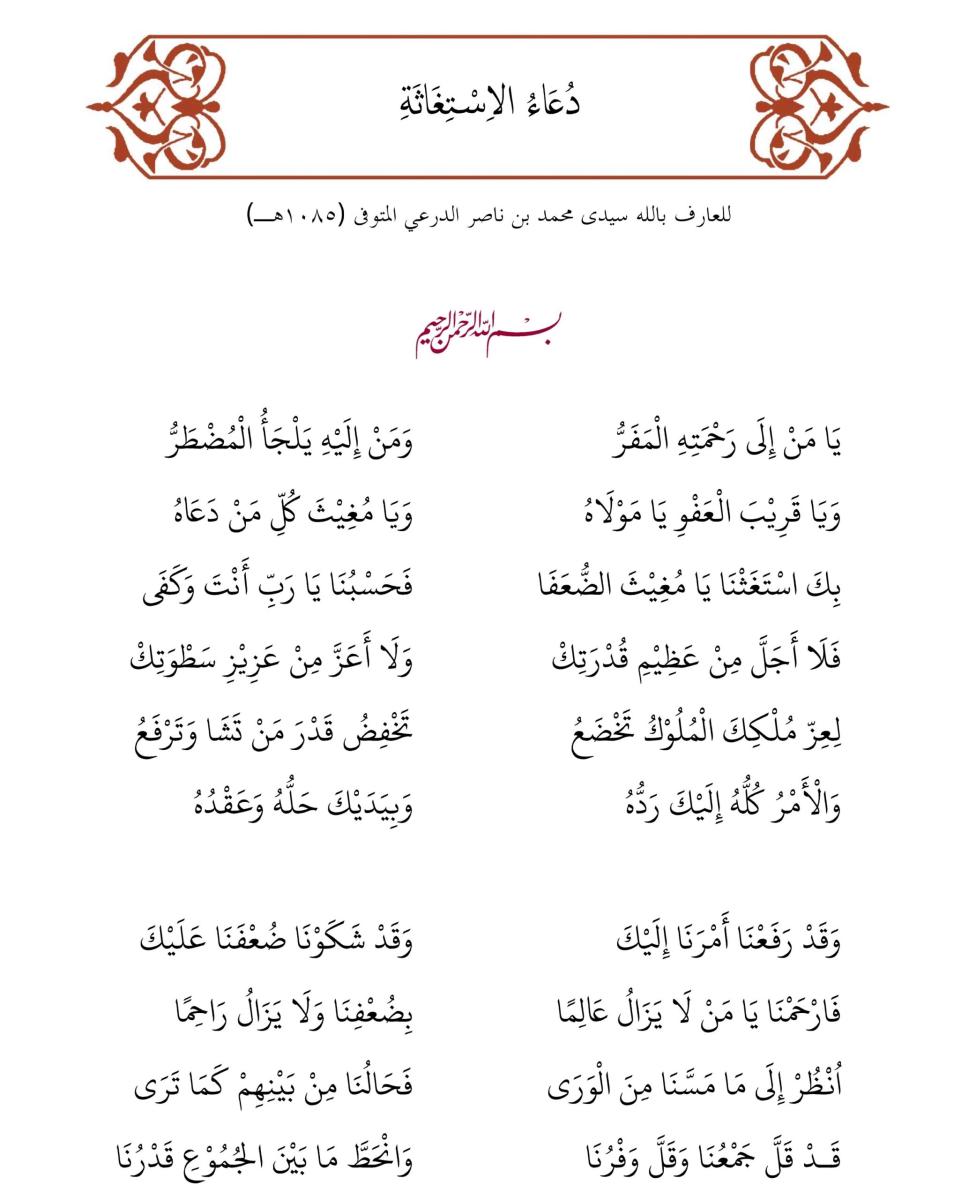 دُعَاءُ الاِسْتِغَاثَةِ
للعارف بالله سيدى محمد بن ناصر الدرعي المتوفى (١٠٨٥هـــ)
بسم الله الرحمن الرحيم
يَا مَنْ إِلَى رَحْمَتِهِ الْمَفَرُّ وَمَنْ إِلَيْهِ يَلْجَأُ الْمُضْطَرُّ
وَيَا قَرِيْبَ الْعَفْوِ يَا مَوْلَاهُ وَيَا مُغِيْثَ كُلِّ مَنْ دَعَاهُ
بِكَ اسْتَغَثْنَا يَا مُغِيْثَ الضُّعَفَا فَحَسْبُنَا يَا رَبِّ أَنْتَ وَكَفَى
فَلَا أَجَلَّ مِنْ عَظِيْمِ قُدْرَتِكْ وَلَا أَعَزَّ مِنْ عَزِيْزِ سَطْوَتِكْ
لِعِزِّ مُلْكِكَ الْمُلُوْكُ تَخْضَعُ تَخْفِضُ قَدْرَ مَنْ تَشَا وَتَرْفَعُ
وَالْأَمْرُ كُلُّهُ إِلَيْكَ رَدُّهُ وَبِيَدَيْكَ حَلُّهُ وَعَقْدُهُ
وَقَدْ رَفَعْنَا أَمْرَنَا إِلَيْكَ وَقَدْ شَكَوْنَا ضُعْفَنَا عَلَيْكَ
فَارْحَمْنَا يَا مَنْ لَا يَزَالُ عَالِمًا بِضُعْفِنَا وَلَا يَزَالُ رَاحِمًا
اُنْظُرْ إِلَى مَا مَسَّنَا مِنَ الْوَرَى فَحَالُنَا مِنْ بَيْنِهِمْ كَمَا تَرَى
قَـدْ قَلَّ جَمْعُنَا وَقَلَّ وَفْرُنَا وَانْحَطَّ مَا بَيْنَ الجُمُوْعِ قَدْرُنَا